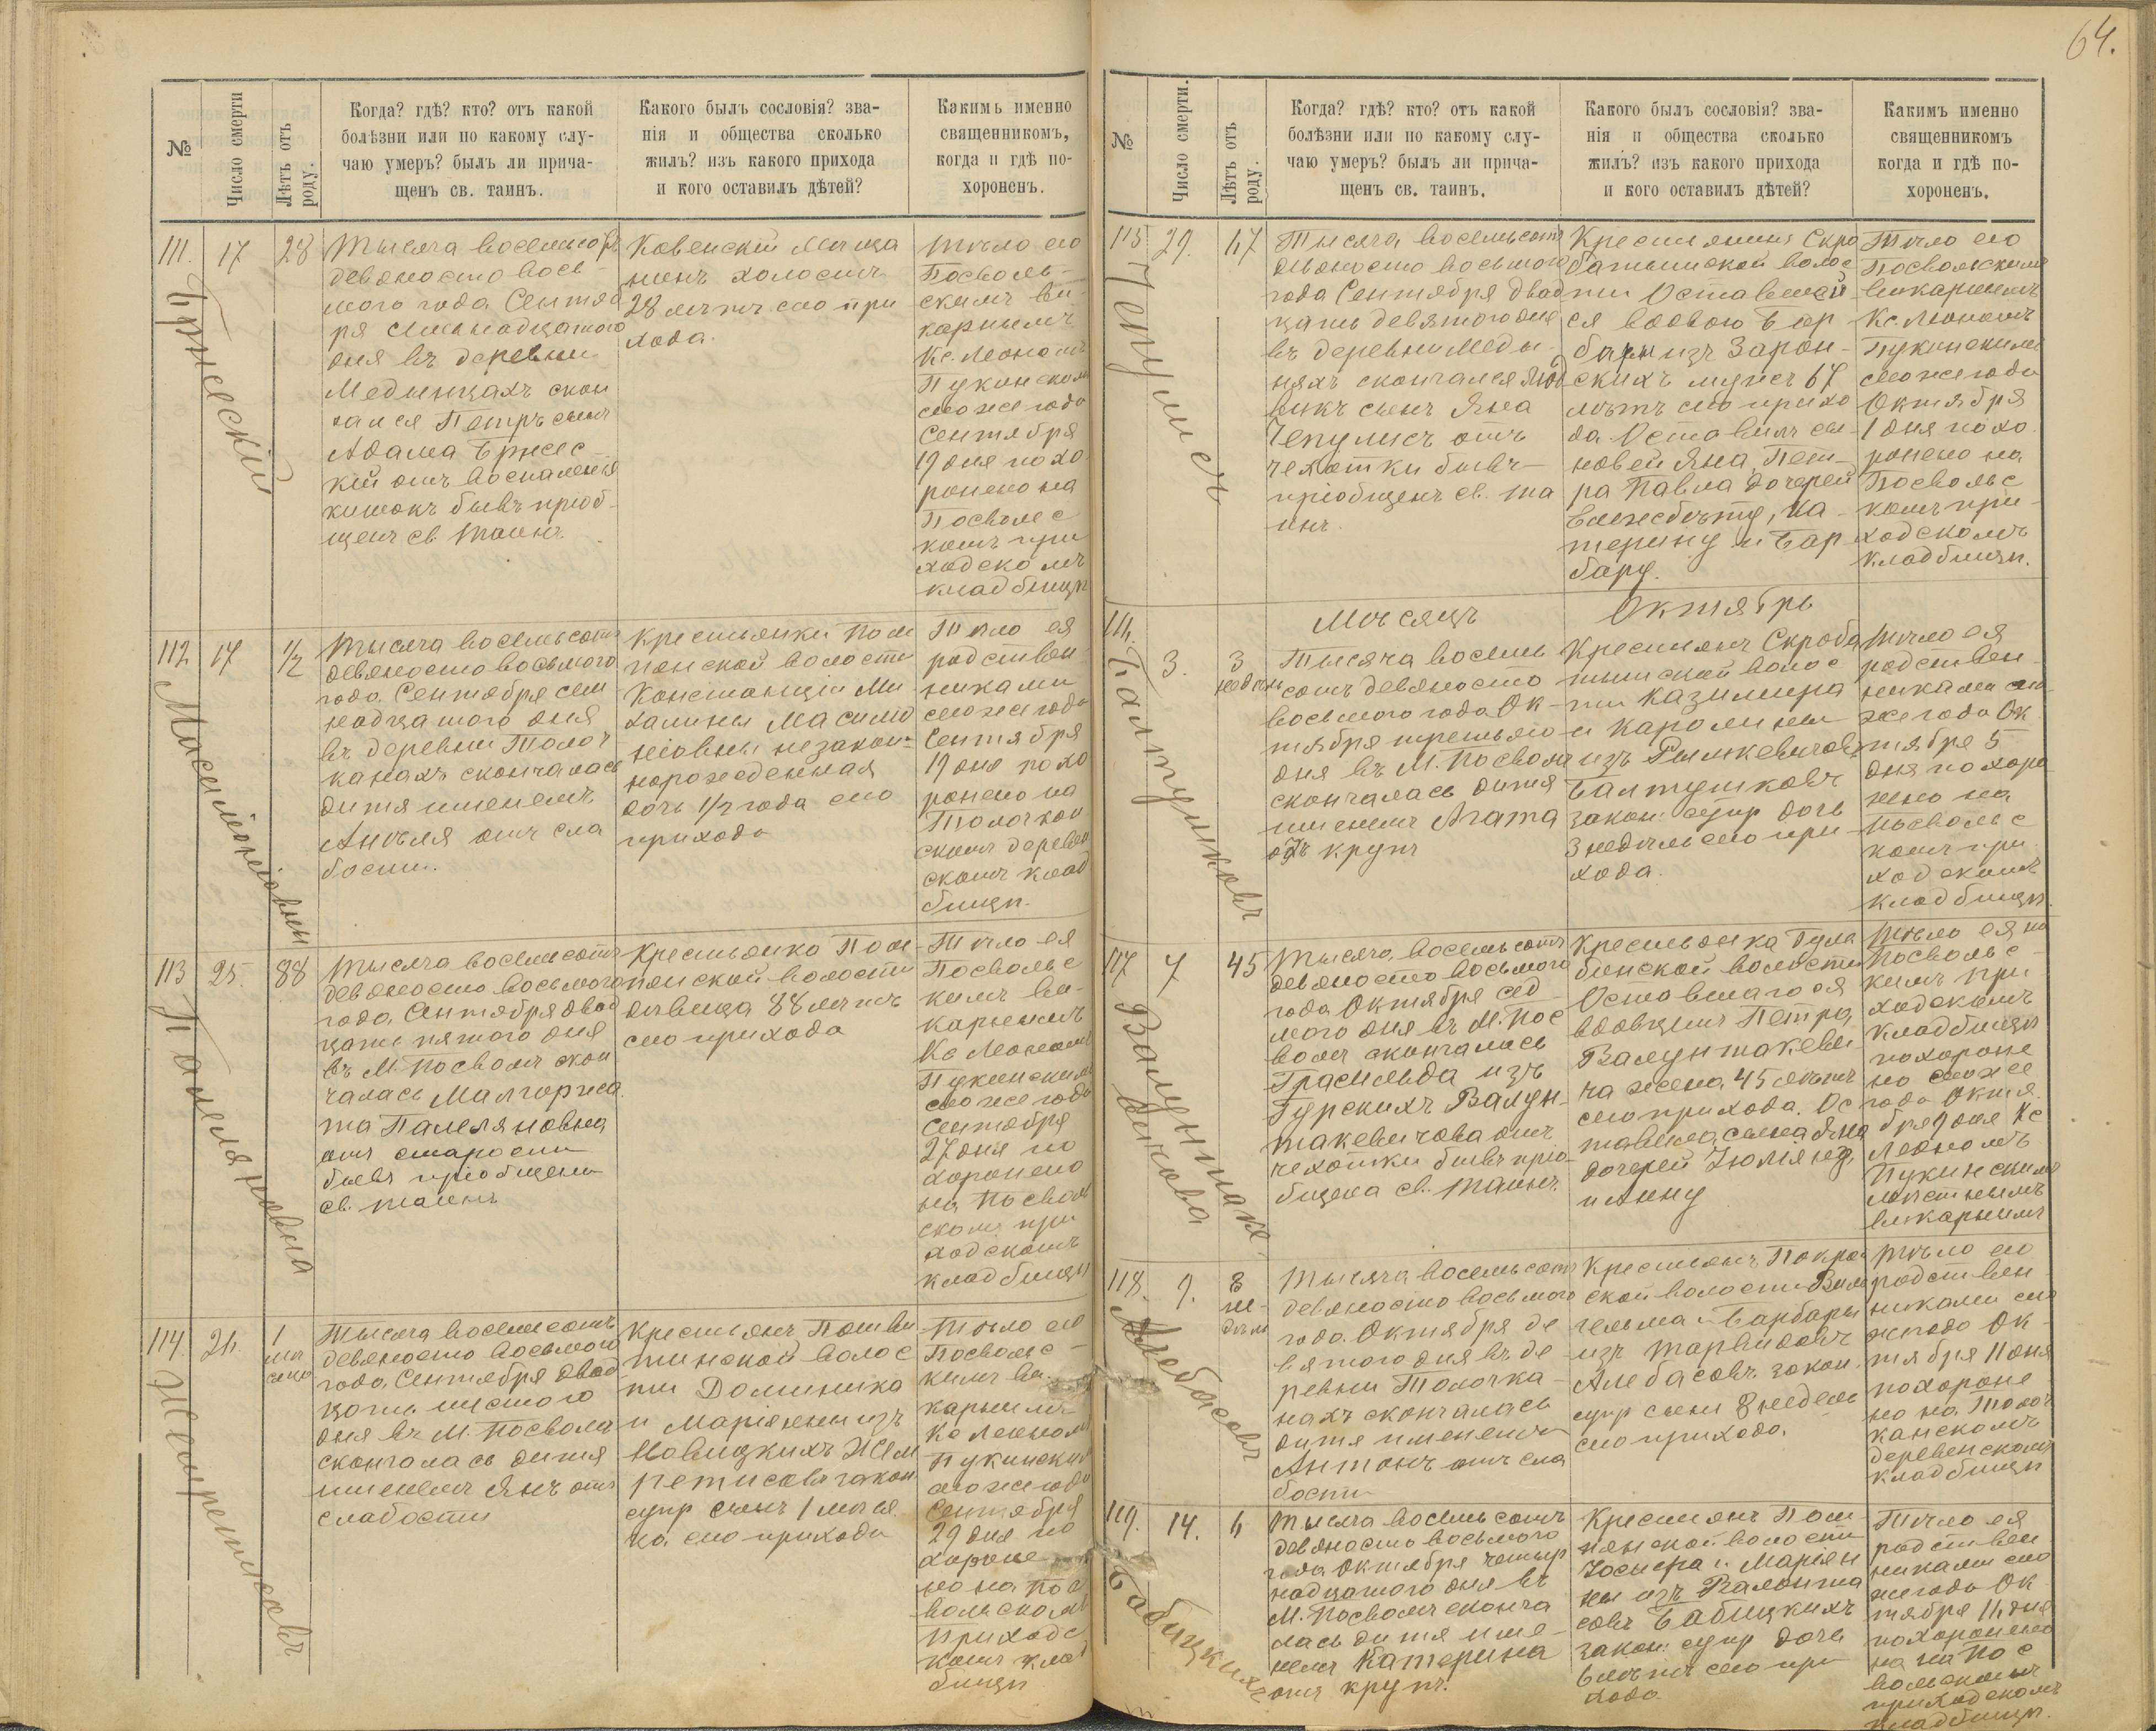 64.
№
Число смерти
Лѣтъ отъ роду.
Когда? гдѣ? кто? отъ какой
болѣзни или по какому слу-
чаю умеръ? былъ ли прича-
щенъ св. таинъ.
Какого былъ сословія? зва-
нія и общества сколько
жилъ? изъ какого прихода
и кого оставилъ дѣтей?
Какимъ именно
священникомъ,
когда и гдѣ по-
хороненъ.
111.
17
28
Бржескій
Тысяча восемьсотъ
девяносто вось-
мого года Сентяб
ря семьнадцатого
дня въ деревни
Мединцахъ скон
чался Петръ сынъ
Адама Бржес-
кій отъ воспаленія
кишокъ бывъ пріоб-
щенъ св. Таинъ.
Ковенскій мѣща
нинъ холостъ
28 лѣтъ сто при
хода.
Тѣло его
Посволь-
скимъ ви-
карнымъ
Кс. Леономъ
Пукинскимъ
сего же года
Сентября
19 дня похо
ронено на
Посволс
комъ при
ходскомъ
кладбищѣ
112
17
1/2
Тысяча восемьсотъ
девяносто восьмого
года Сентября сем
надцатого дня
въ деревни Толоч
канахъ скончалась
дитя именемъ
Анѣля отъ сла
бости.
Крестьянки Пом
понской волости
Констанціи Ми
халины
незакон-
норожденная
дочь 1/2 года сего
прихода
Тѣло ея
родствен
никами
сего же года
Сентября
19 дня похо
ронено на
Толочкон
скомъ деревен
скомъ клад
бищѣ.
113
25.
88
Памеляновна
Тысяча восемсотъ
девяносто восьмого
года Сентября двад
цать пятого дня
въ М. Посволѣ скон
чалась Малгоржа
та Памеляновна
отъ старости
бывъ пріобщена
св. таинъ
Крестьянка Пом-
пянской волости
дѣвица 88 лѣтъ
сего прихода
Тѣло ея
Посвольс
кимъ ви-
карнымъ
Кс Леономъ
Пукинскимъ
сего же года
Сентября
27 дня по
хоронено
на Посволь
скомъ при
ходскомъ
кладбищѣ
114.
26.
1
мѣ
сяца
Тысяча восемсотъ
девяносто восьмого
года Сентября двад
цать шестого
дня въ М. Посволѣ
скончалась дитя
именемъ Янъ отъ
слабости
Крестьянъ Пошви
тинской волос
ти Доминика
и Маріянны изъ
Новицкихъ
закон
супр сынъ 1 мѣся
ца сего прихода
Тѣло его
Посвольс-
кимъ ви-
карнымъ
Кс Леономъ
Пукинскимъ
сего же года
Сентября
29 дня по
хороне
но на Пос
вольскомъ
приходс
комъ клад
бищѣ
№
Число смерти.
Лѣтъ отъ роду.
Когда? гдѣ? кто? отъ какой
болѣзни или по какому слу-
чаю умеръ? былъ ли прича-
щенъ св. таинъ.
Какого былъ сословія? зва-
нія и общества сколько
жилъ? изъ какого прихода
и кого оставилъ дѣтей?
Какимъ именно
священникомъ
когда и гдѣ по-
хороненъ.
115
29.
67
Чепулисъ
Тысяча восемьсотъ
девяносто восьмого
года Сентября двад
цать девятого дня
въ деревни Меды-
няхъ скончался Люд
викъ сынъ Яна
Чепулисъ отъ
чехотки бывъ
пріобщенъ св. та
инъ.
Крестьянинъ Скро
батышской волос
ти Оставшей
ся вдовою Бар
бары изъ Зарон-
скихъ мужъ 67
лѣтъ сего прихо
да. Оставилъ сы-
новей Яна, Пет-
ра Павла дочерей
Елжебѣту, Ка-
терину и Бар
бару.
Тѣло его
Посвольскимъ
викарнымъ
Кс. Леономъ
Пукинскимъ
сего же года
Октября
1 дня похо
ронено на
Посвольс
комъ при
ходскомъ
кладбищѣ.
Мѣсяцъ Октябрь
116.
3.
3
недѣль
Балтушковъ
Тысяча восемь
сотъ девяносто
восьмого года Ок-
тября третьяго
дня въ М. Посволѣ
скончалась дитя
именемъ Агата
отъ крупъ
Крестьянъ Скроба
тышской волос
ти Казимира
и Каролины
изъ Рымкевичовъ
Балтушковъ
закон: супр дочь
3 недѣль сего при-
хода.
Тѣло ея
родствен
никами сего
же года Ок
тября 5
дня похоро
нено на
Посвольс
комъ при
ходскомъ
кладбищѣ.
117
7
45
Валунтаке-
вичова
Тысяча восемьсотъ
девяносто восьмого
года Октября сед
мого дня въ М. Пос
волѣ скончалась
Грасильда изъ
Гурскихъ Валун-
такевичова отъ
чехотки бывъ прио-
бщена св. Таинъ.
Крестьянка Гула
бинской волости
Оставшагося
вдовцемъ Петра
Валунтакеви-
ча жена 45 лѣтъ
сего прихода. Ос
тавила сына Яна
дочерей Юліянну,
и Анну
Тѣло ея на
Посвольс-
кимъ при
ходскомъ
кладбищѣ
похороне
но сего же
года Октя.
бря 9 дня Кс
Леономъ
Пукинскимъ
мѣстнымъ
викарнымъ
118.
9.
8
не-
дѣль
Алебасовъ
Тысяча восемьсотъ
девяносто восьмого
года Октября де
вятого дня въ де
ревни Толочка-
нахъ скончалась
дитя именемъ
Антонъ отъ сла
бости
Крестьянъ Покрой
ской волости Виль
гельма и Барбары
изъ Тарвидовъ
Алебасовъ закон.
супр сынъ 8 недель
сего прихода.
Тѣло его
родствен
никами сего
же года Ок-
тября 11 дня
похороне
но на Толоч
канскомъ
деревенскомъ
кладбищѣ
119.
14.
6
Бабицкихъ
Тысяча восемьсотъ
девяносто восьмого
года Октября четыр
надцатого дня въ
М. Посволѣ сконча
лась дитя име-
немъ Катерина
отъ крупъ.
Крестьянъ Пом-
пянской волости
Іосифа и Маріян
ны изъ Валонта
совъ Бабицкихъ
закон: супр дочь
6 лѣтъ сего при
хода
Тѣло ея
родствен
никами сего
же года Ок
тября 16 дня
похоронено
на на Пос
вольскомъ
приходскомъ
кладбищѣ.